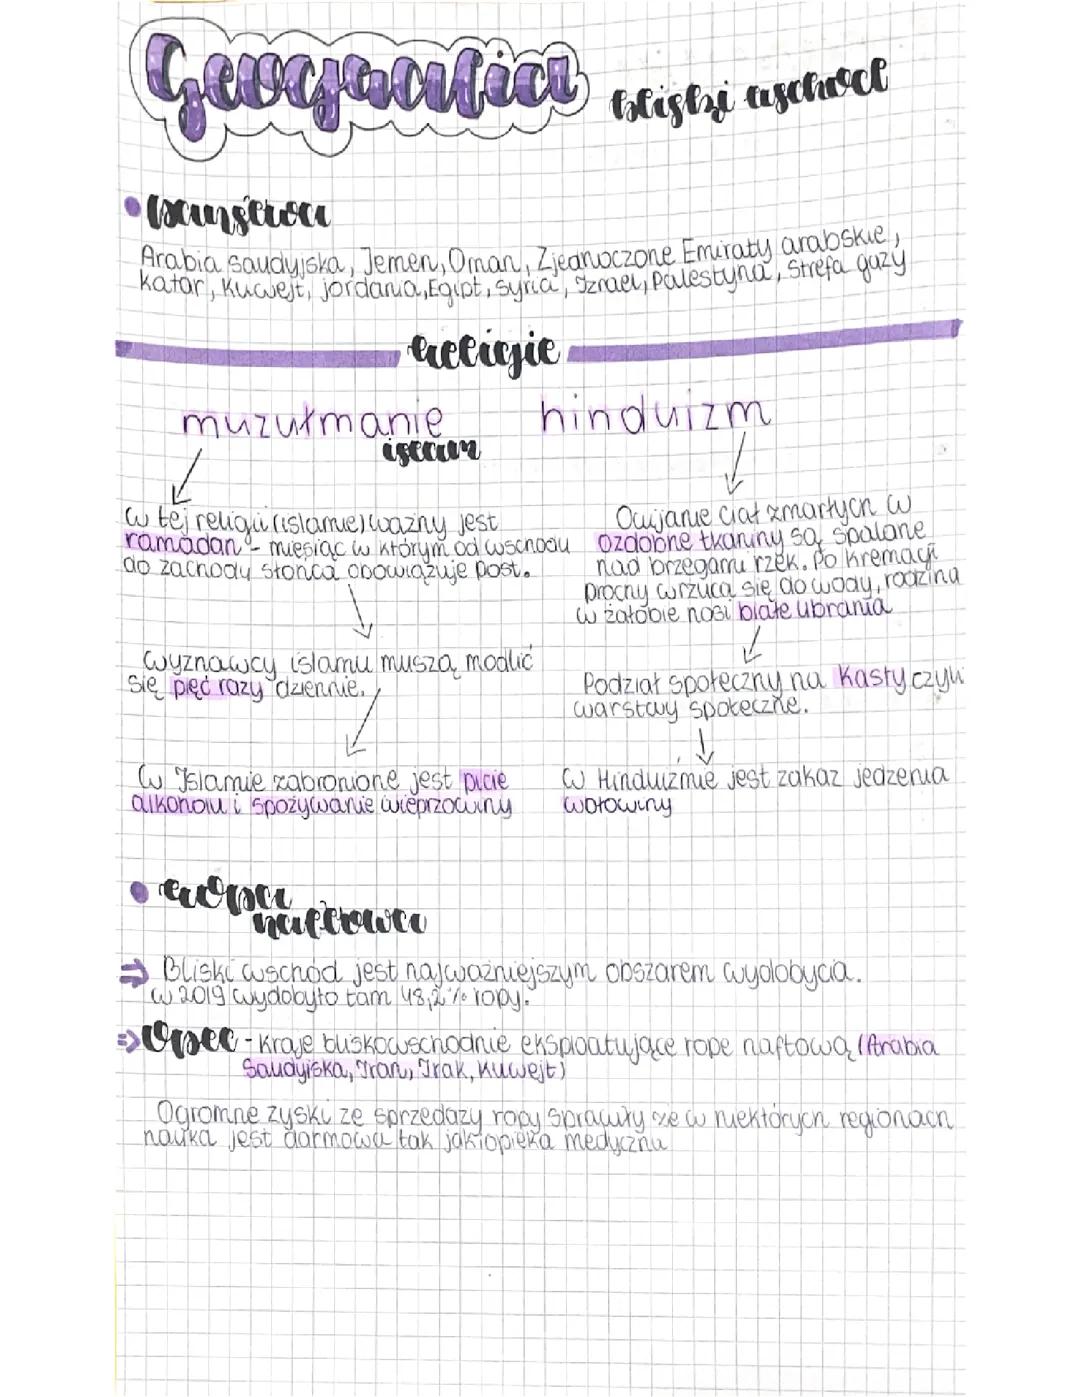 Geografia bliski wschód
państwa
Arabia saudyjska, Jemen, Oman, Zjednoczone Emiraty arabskie,
katar, kuwejt, jordania, Egipt, syria, Izrael, Palestyna, Strefa gazy
religie
muzułmanie hinduizm
islam
W tej religii (islamie) ważny jest
ramadan - miesiąc w którym od wschodu
do zachodu słońca obowiązuje post.
Wyznawcy islamu muszą modlić
się pięć razy dziennie.
W Islamie zabronione jest picie
alkoholu i spożywanie wieprzowiny
Owijanie ciał zmarłych w
ozdobne tkaniny są spalane
nad brzegami rzek. Po kremacji
prochy wrzuca się do wody, rodzina
w żałobie nosi białe ubrania
Podział społeczny na kasty czyli
warstwy społeczne.
W Hinduizmie jest zakaz jedzenia
wołowiny
ropa
naftowa
⇒ Bliski wschód jest najważniejszym obszarem wydobycia.
w 2019 wydobyto tam 48,2% ropy.
⇒ Opec - kraje bliskowschodnie eksploatujące rope naftową (Arabia
Saudyjska, Iran, Irak, kuwejt)
Ogromne zyski ze sprzedaży ropy sprawiły że w niektórych regionach
nauka jest darmowa tak jak opieka medyczna